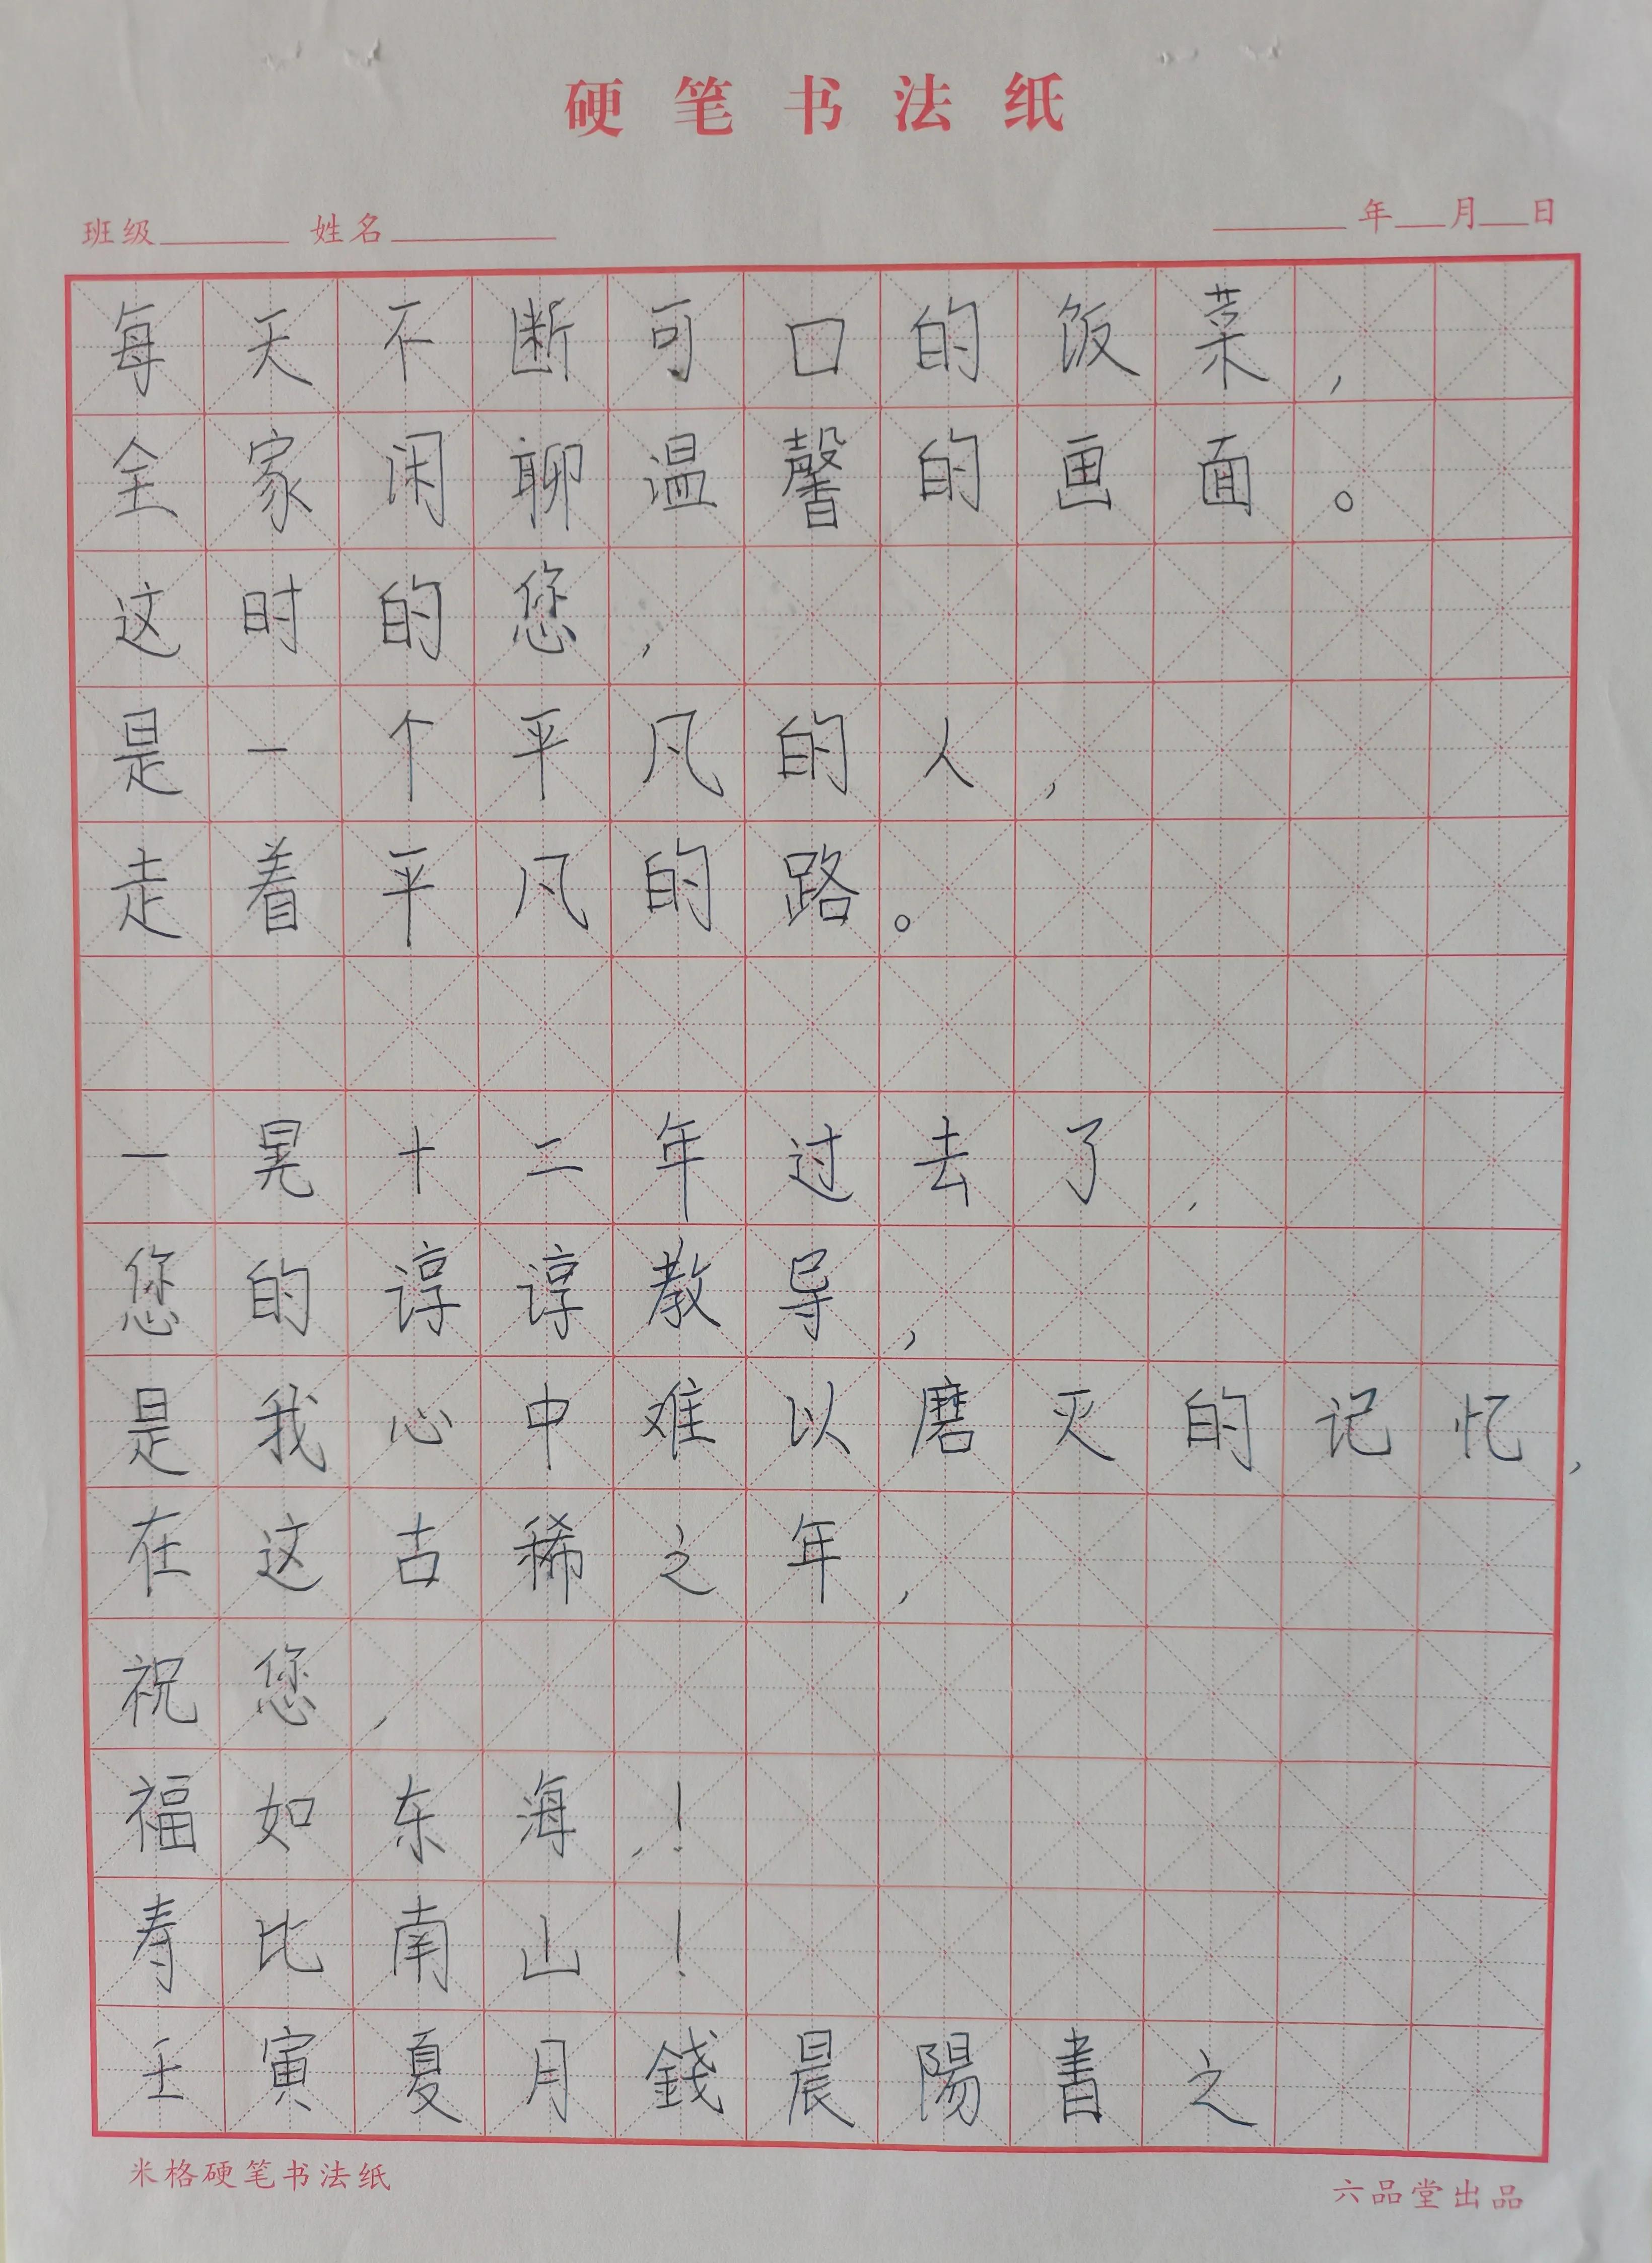 硬笔书法纸
班级 姓名 年 月 日
每天不断可口的饭菜，
全家闲聊温馨的画面。
这时的您，
是一个平凡的人，
走着平凡的路。
一晃十二年过去了，
您的谆谆教导，
是我心中难以磨灭的记忆，
在这古稀之年，
祝您，
福如东海，！
寿比南山！
壬寅夏月錢晨陽書之
米格硬笔书法纸
六品堂出品